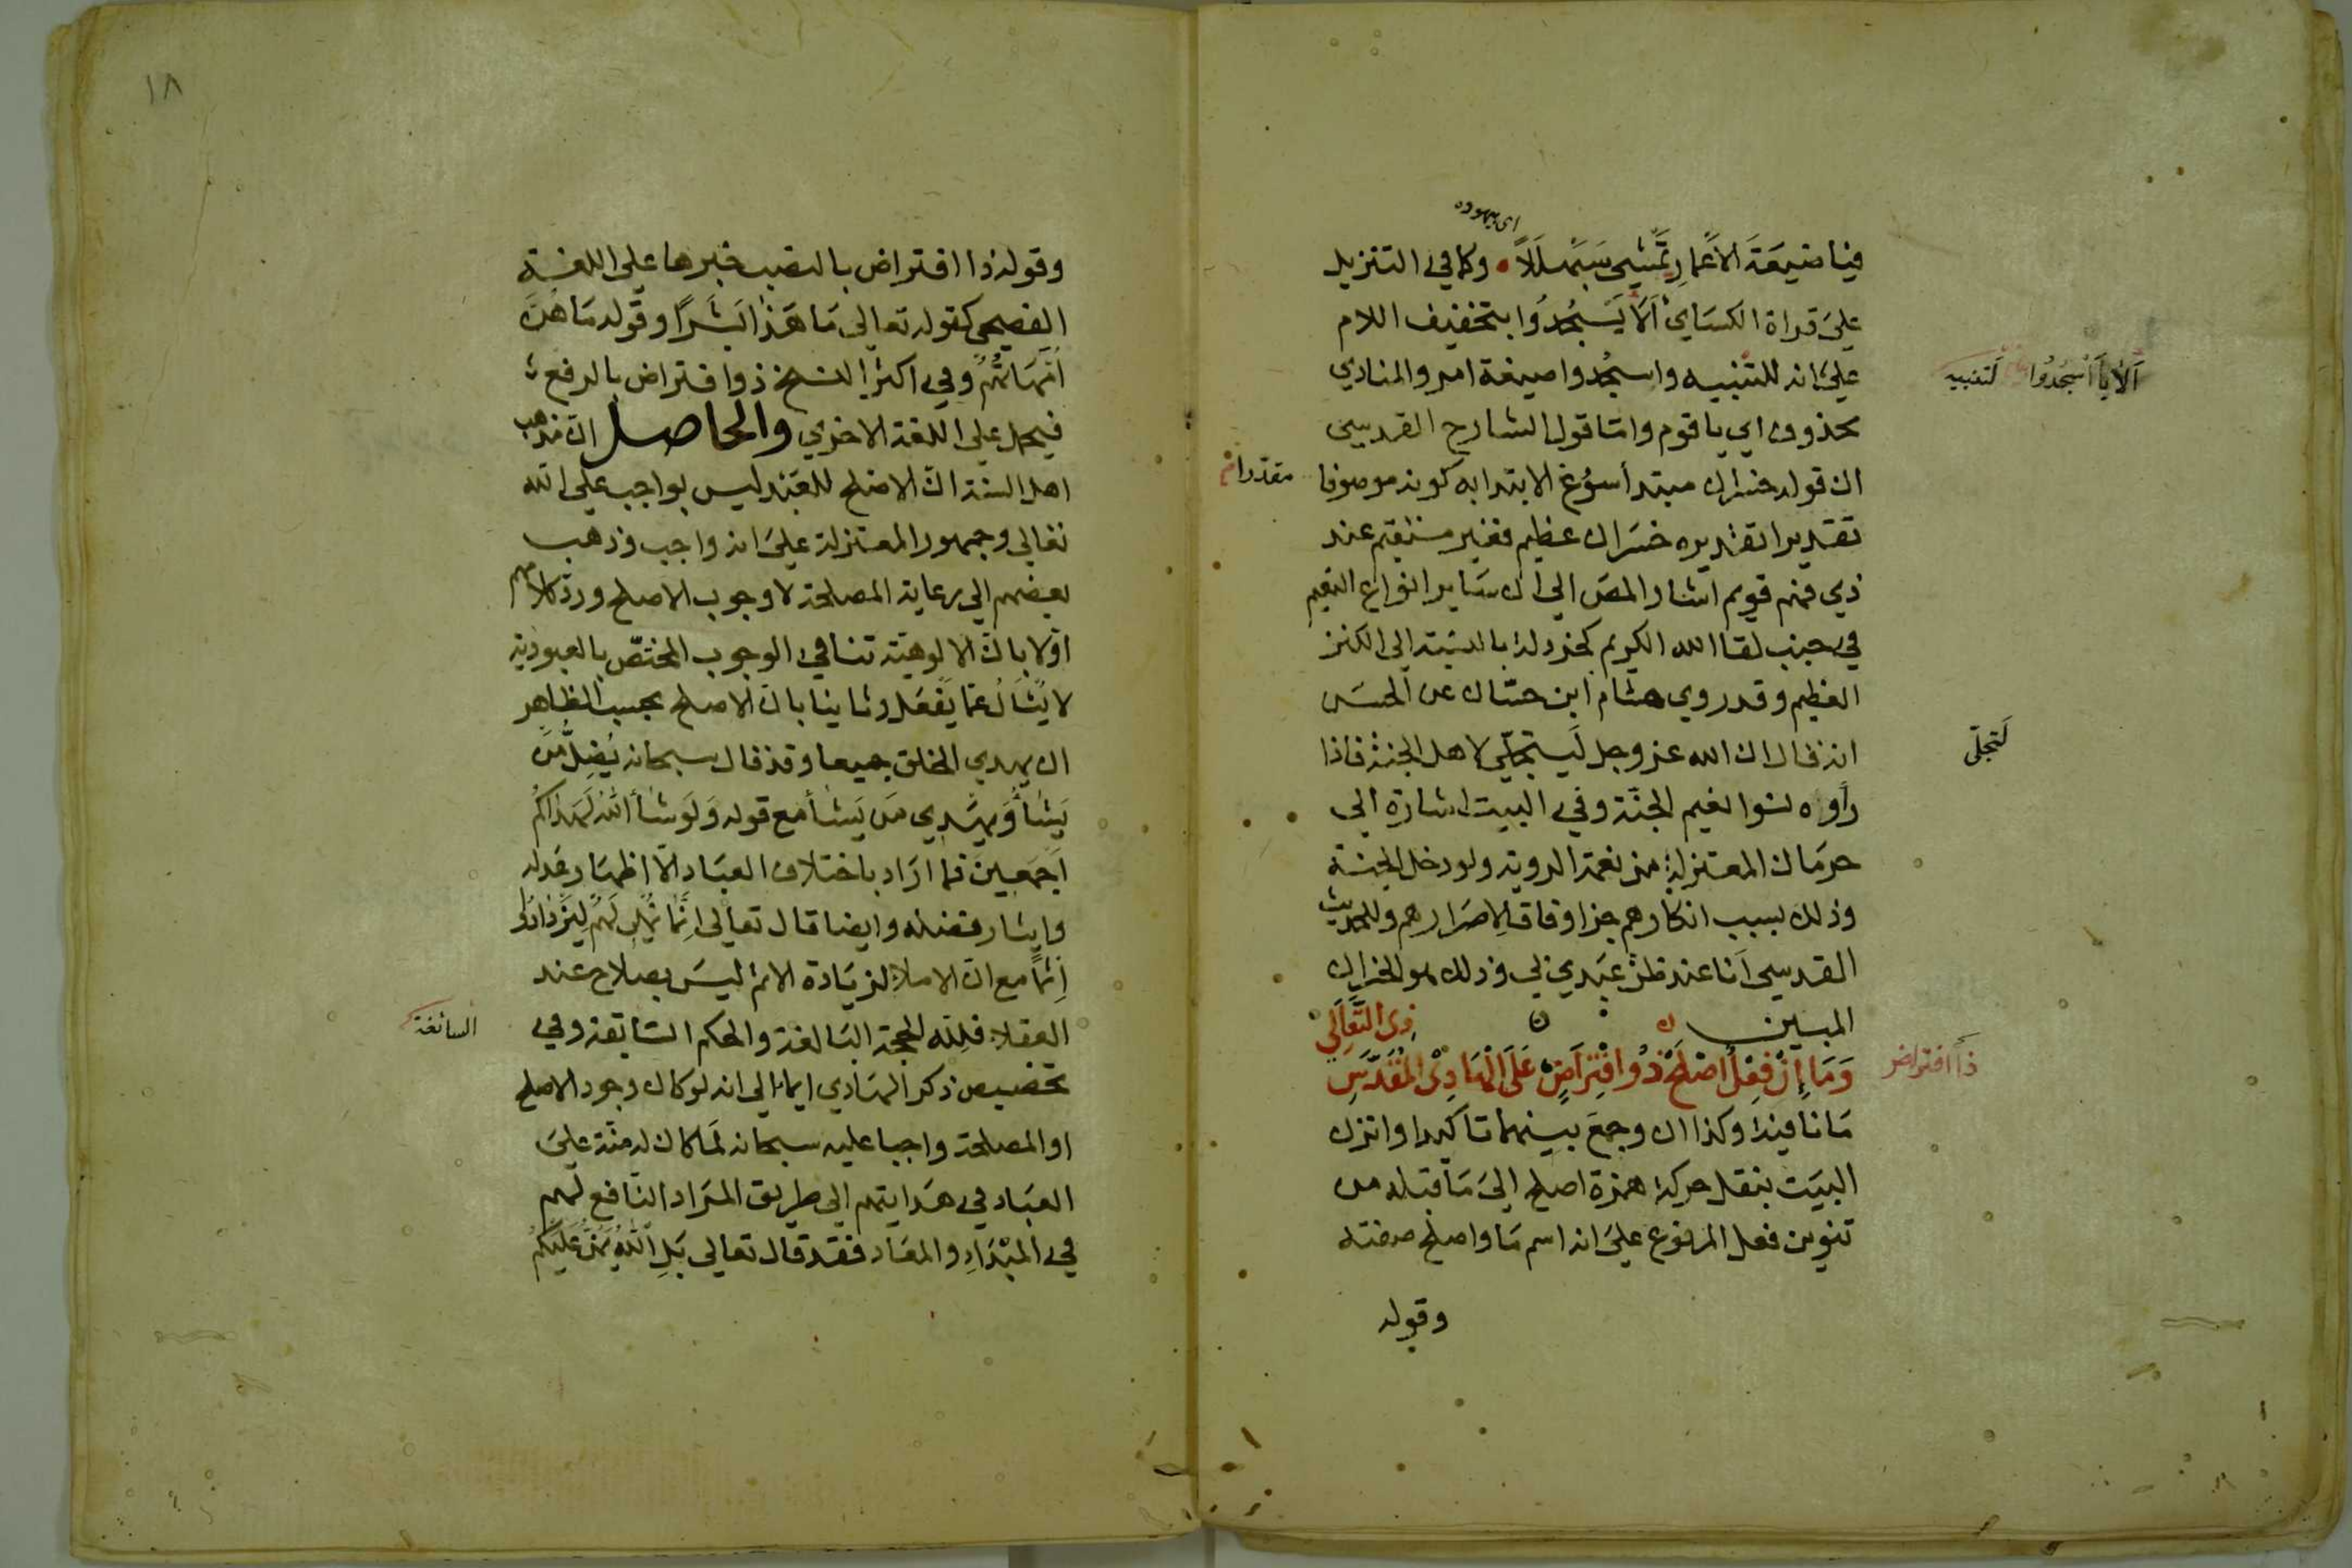 اى بيهوده
فيا ضيعة الاعمار تمشى سبهللا • وكما في التنزيل
على قراة الكساي ألا يسجدوا بتخفيف اللام
على انه للتنبيه واسجدوا صيغة امر والمنادي
ألا يا اسجدوا لتنبيه
محذوف اي يا قوم واما قول الشارح القدسي
ان قوله خسران مبتدأ سوغ الابتدا به كونه موصوفا
مقدرا
تقديرا تقديره خسران عظيم فغير مستقيم عند
ذي فهم قويم اشار المص الي ان ساير انواع النعيم
في جنب لقا الله الكريم كخردلة بالنسبة الى الكنز
العظيم وقد روي هشام ابن حسّان عن الحسن
انه قال ان الله عز وجل ليتجلّي لاهل الجنة فاذا
لتجلّى
رأوه نسوا نعيم الجنّة وفي البيت اشارة الي
حرمان المعتزلة من نعمة الروية ولو دخل الجنة
وذلك بسبب انكارهم جزا وفاقا لاصرارهم وللحديث
القدسي أنا عند ظن عبدي بي وذلك هو الخسران
المبين
ذى التعالي
وَمَا إِنْ فِعْلٌ اصْلَحُ ذُو افْتِرَاضٍ عَلَى الْهَادِي الْمُقَدَّسِ
ذا افتراض
ما نافية وكذا ان وجمع بينهما تاكيدا واتزن
البيت بنقل حركة همزة اصلح إلى ما قبله من
تنوين فعل المرفوع على انه اسم ما واصلح صفته
وقوله
١٨
وقوله ذا افتراض بالنصب خبرها على اللغة
الفصحى كقوله تعالى مَا هَذَا بَشَرًا وقوله مَا هُنَّ
أُمَّهَاتِهِمْ وفي اكثر النسخ ذو افتراض بالرفع
فيحمل على اللغة الاخري والحاصل ان مذهب
اهل السنة انّ الاصلح للعبد ليس بواجب على الله
تعالي وجمهور المعتزلة على انه واجب وذهب
بعضهم الي رعاية المصلحة لا وجوب الاصلح ورد كلامهم
اوّلا بانّ الالوهيّة تنافي الوجوب المختصّ بالعبوديّة
لا يُسْأَلُ عَمَّا يَفْعَلُ وثانيا بانّ الاصلح بحسب الظاهر
ان يهدي الخلق جميعا وقد قال سبحانه يُضِلُّ مَنْ
يَشَاءُ وَيَهْدِي مَن يَشَاءُ مع قوله وَلَوْ شَاءَ اللهُ لَهَدَاكُمْ
أَجْمَعِينَ فما اراد باختلاف العباد الّا اظهار عدله
وايثار فضله وايضا قال تعالى إِنَّمَا نُمْلِي لَهُمْ لِيَزْدَادُوا
إِثْمًا مع انّ الاملا لزيادة الاثم ليس بصلاح عند
العقلا فلله الحجّة البالغة والحكم السابقة وفي
السائغة
تخصيص ذكر الهادي ايما الي انه لو كان وجود الاصلح
او المصلحة واجبا عليه سبحانه لما كان له منّة على
العباد في هدايتهم الى طريق المراد النافع لهم
في المبْدَاءِ والمعاد فقد قال تعالى بَلِ اللهُ يَمُنُّ عَلَيْكُمْ